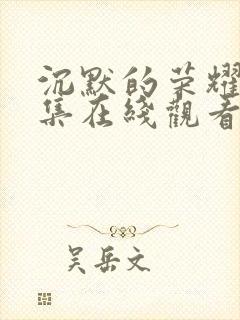 沉默的荣耀
集在綫觀看
吴岳文